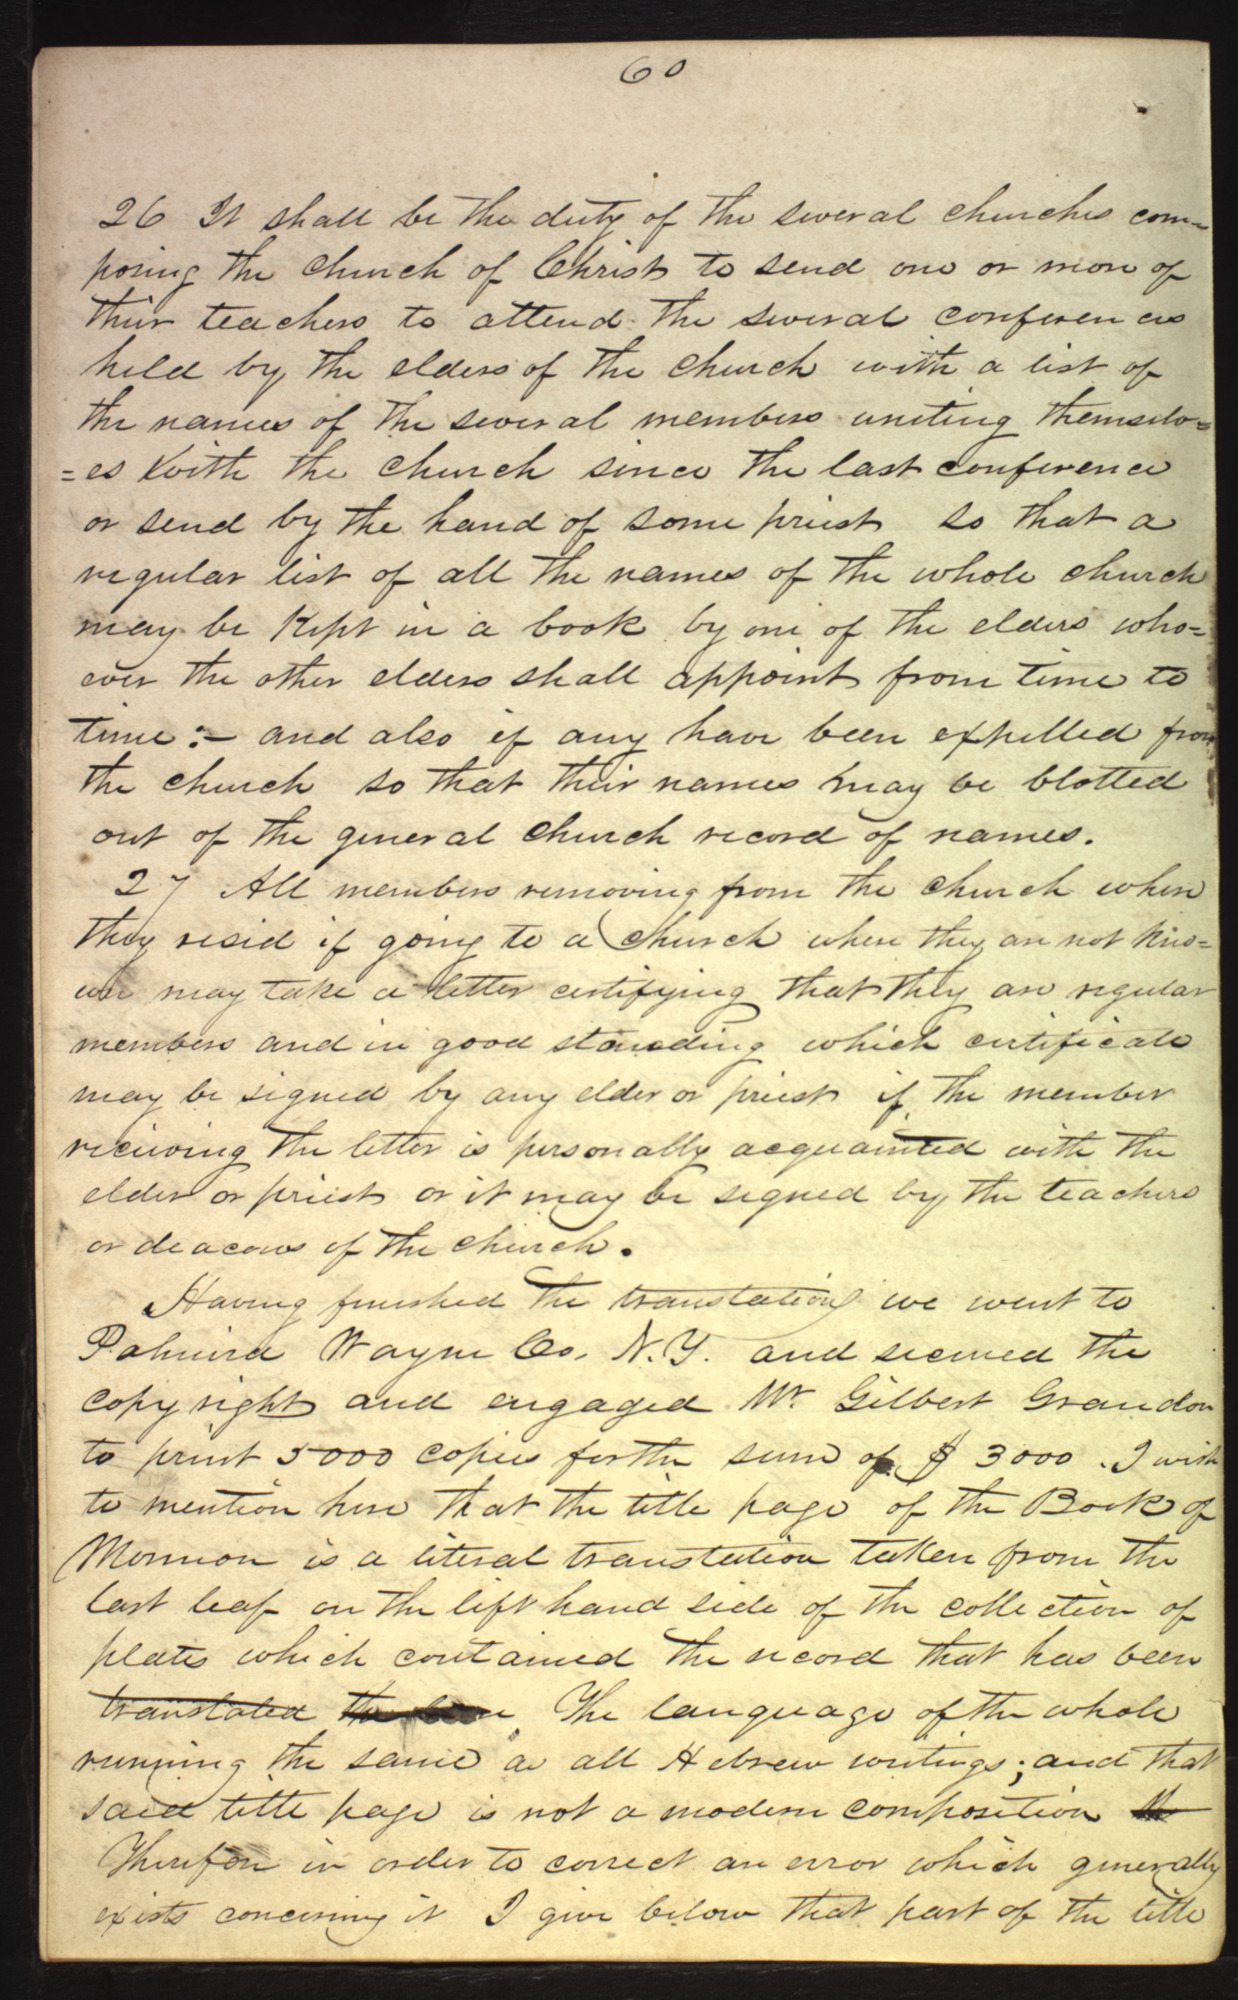 60
26 It shall be the duty of the several churches com-
posing the church of Christ to send one or more of
their teachers to attend the several conferences
held by the elders of the church with a list of
the names of the several members uniting themselv=
=es with the church since the last conference
or send by the hand of some priest so that a
regular list of all the names of the whole church
may be kept in a book by one of the elders who=
ever the other elders shall appoint from time to
time:- and also if any have been expelled from
the church so that their names may be blotted
out of the general church record of names.
27 All members removing from the church where
they resid if going to a church where they are not kno=
wn may take a letter certifying that they are regular
members and in good standing which certificate
may be signed by any elder or priest if the member
recieving the letter is personally acquainted with the
elder or priest or it may be signed by the teachers
or deacons of the church.
Having finished the translation we went to
Palmira Wayne Co. N.Y. and secured the
copy right and engaged Mr Gilbert Grandon
to print 5000 copies for the sum of $3000. I wish
to mention here that the title page of the Book of
Mormon is a literal translation taken from the
last leaf on the left hand side of the collection of
plates which contained the record that has been
translated The language of the whole
running the same as all Hebrew writings; and that
said title page is not a modern composition
Therefore in order to correct an error which generally
exists concerning it I give below that part of the title